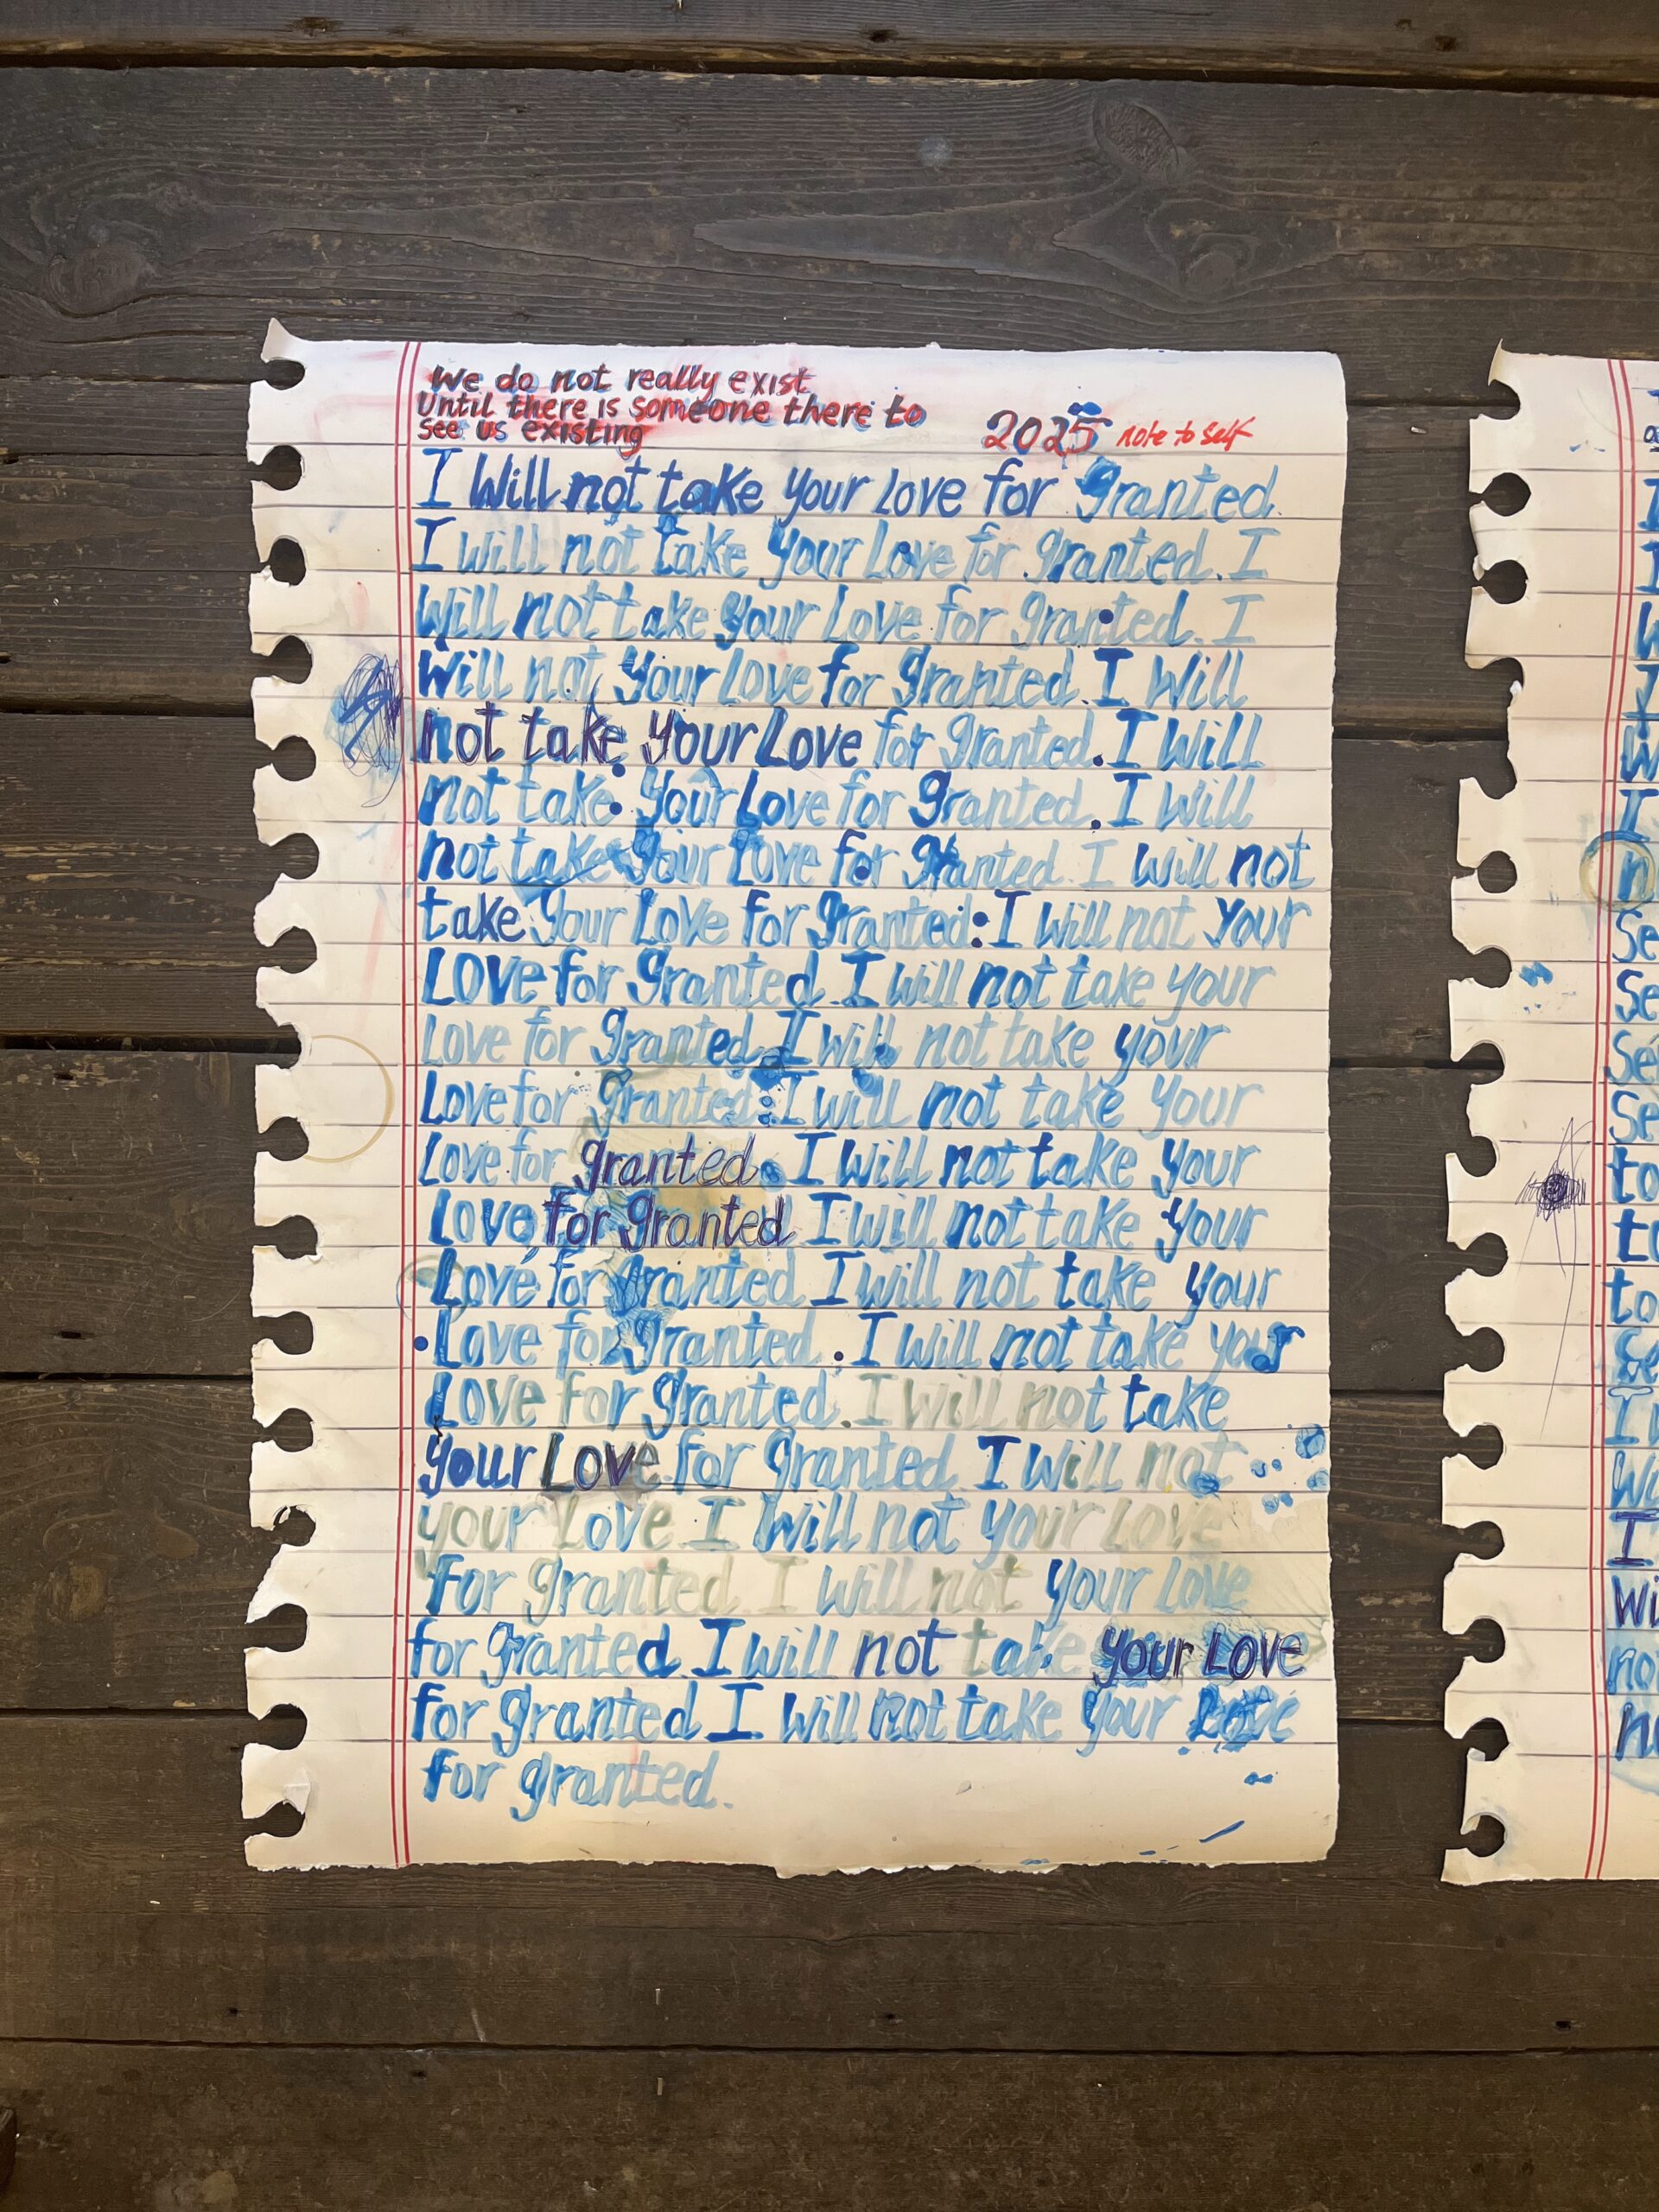 We do not really exist
Until there is someone there to
see us existing
2025 note to self
I Will not take your Love for granted.
I will not take your Love for granted. I
will not take your Love for granted. I
Will not your Love for granted. I Will
not take your Love for granted. I Will
not take your Love for granted. I Will
not take your Love for granted. I will not
take your Love for granted. I will not your
Love for granted. I will not take your
Love for granted. I will not take your
Love for granted. I will not take your
Love for granted. I will not take your
Love for granted I will not take your
Love for granted I will not take your
Love for granted. I will not take your
Love for granted. I will not take
your Love for granted. I will not
your Love I Will not your Love
For granted I will not your Love
for granted. I will not take your Love
for granted I will not take your Love
for granted.